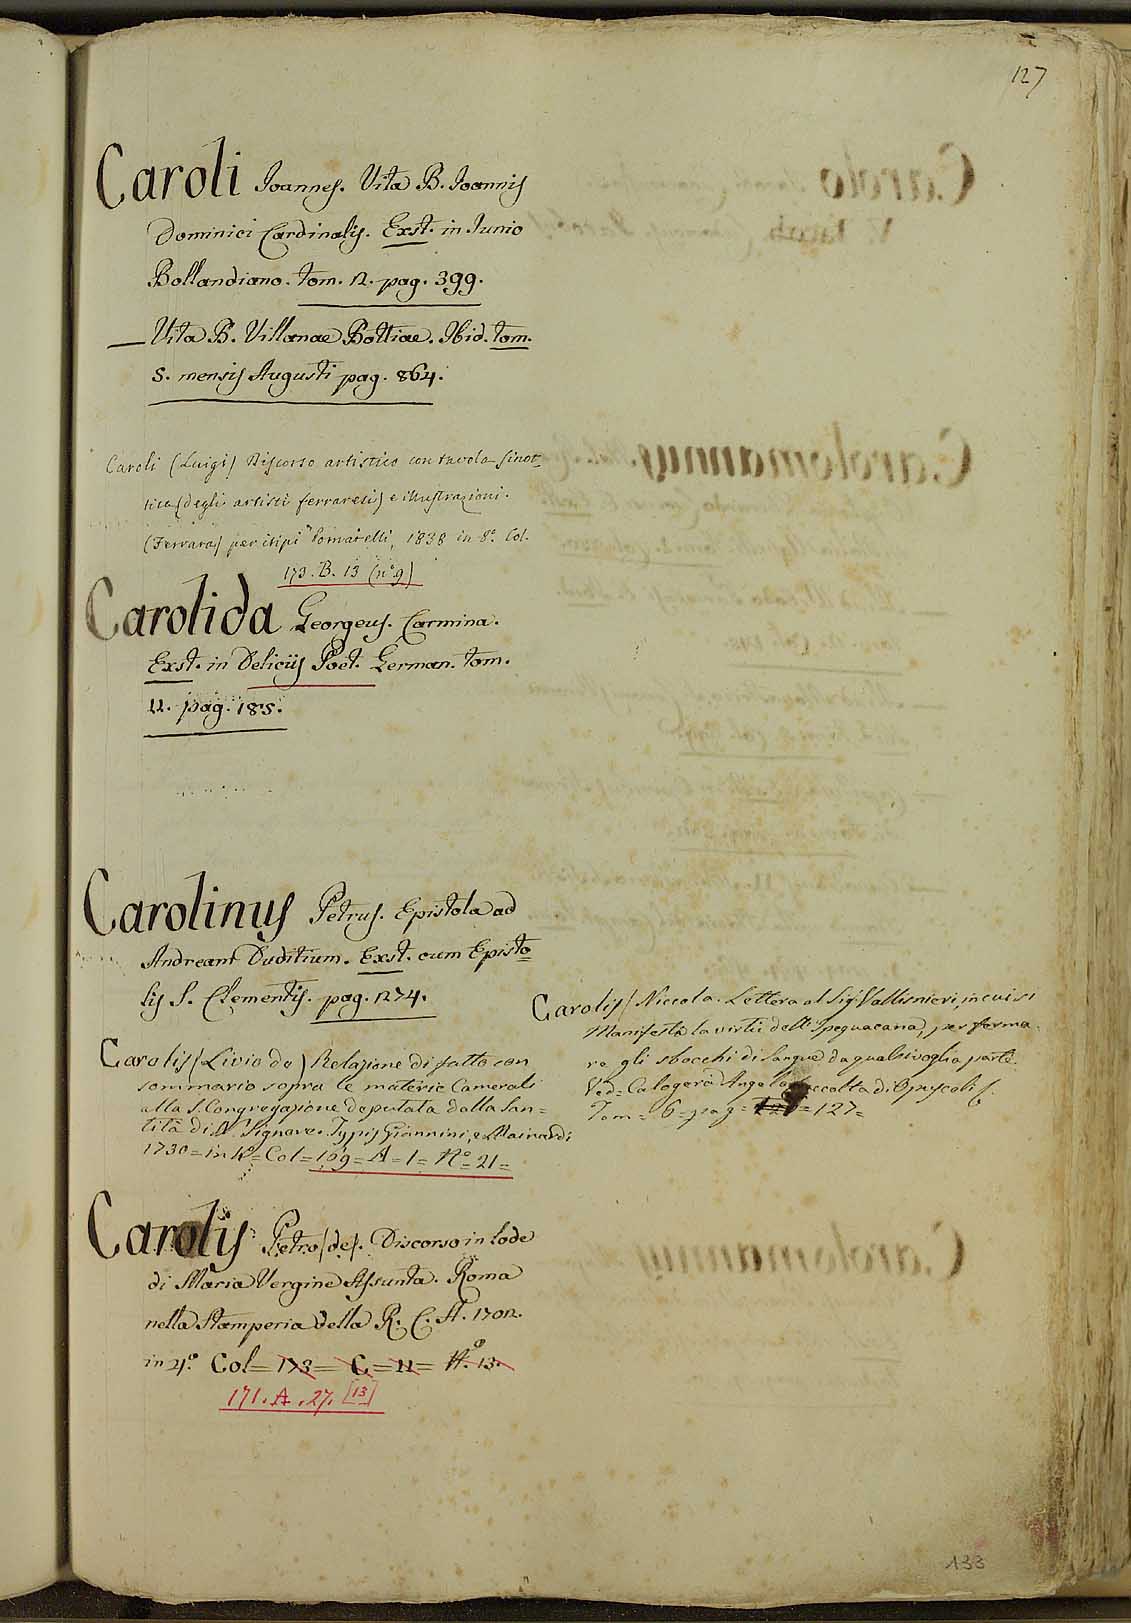 127
Caroli Joannes. Vita B. Joannis
Dominici Cardinalis. Exst. in Junio
Bollandiano. tom. 12. pag. 399.
— Vita B. Villanae Bottiae. Ibid. tom.
5. mensis Augusti pag. 864.
Caroli (Luigi) Discorso artistico con tavola sinot-
tica (degli artisti ferraresi) e illustrazioni.
(Ferrara) per i tipi Pomatelli, 1838 in 8.° Col.
173. B. 13 (n.° 9)
Carolida Georgeus. Carmina.
Exst. in Deliciis Poet. German. tom.
11. pag. 185.
Carolinus Petrus. Epistola ad
Andream Duditium. Exst. cum Episto=
lis S. Clementis. pag. 1274.
Carolis (Livio de) Relazione di fatto con
sommario sopra le materie Camerali
alla S. Congregazione deputata dalla San=
tità di N. Signore. Typis Giannini, e Mainardi
1730 = in 4.° = Col = 109 = A = 1 = N.° = 21 =
Carolis Petro (de). Discorso in lode
di Maria Vergine Assunta. Roma
nella Stamperia della R. C. A. 1702.
in 4.° Col = 173 = C = 11 = N.° 13.
171. A. 27. [13]
Carolis (Niccola. Lettera al Sig.r Vallisnieri, in cui si
Manifesta la virtù dell' Ipequacana, per ferma-
re gli sbocchi di Sangue da qualsivoglia parte.
Ved = Calogerà Angelo Raccolta di Opuscoli
Tom = 6 = pag = = 127 =
133